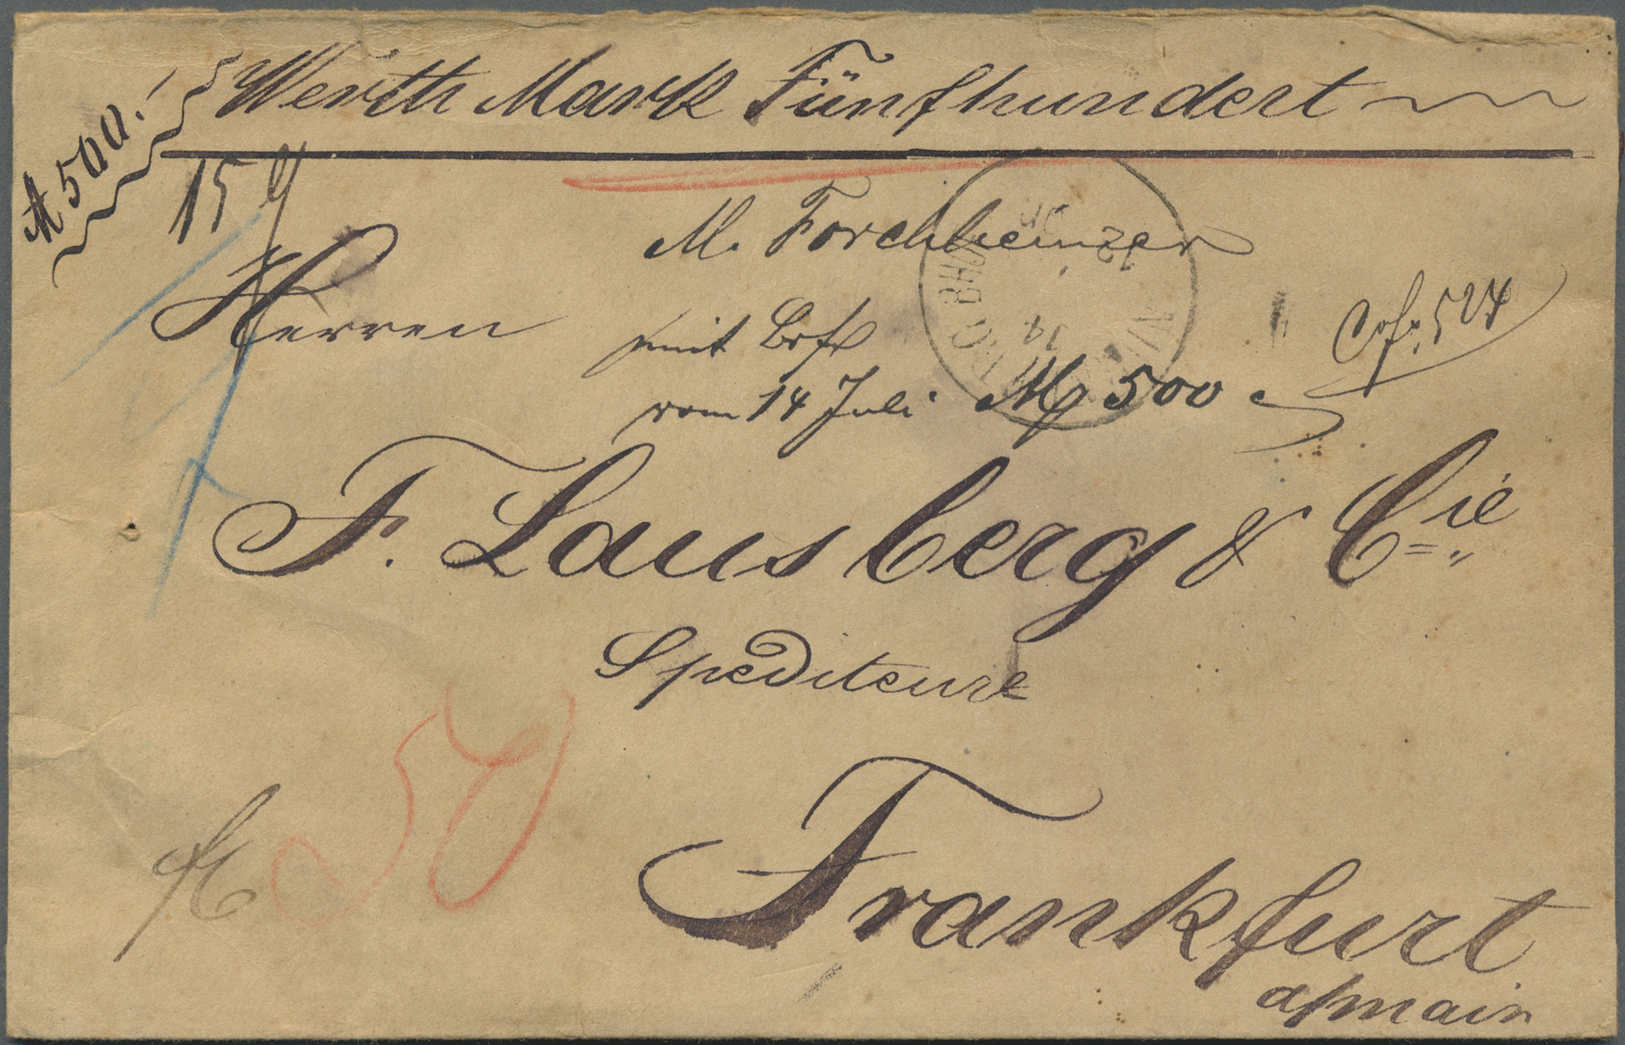 Werth Mark Fünfhundert
M 500.
15 g
M. Forchheimer
Herren
mit Brf
vom 14 Juli M 500
F. Lausberg & Cie
Spediteure
50
Frankfurt
a/main